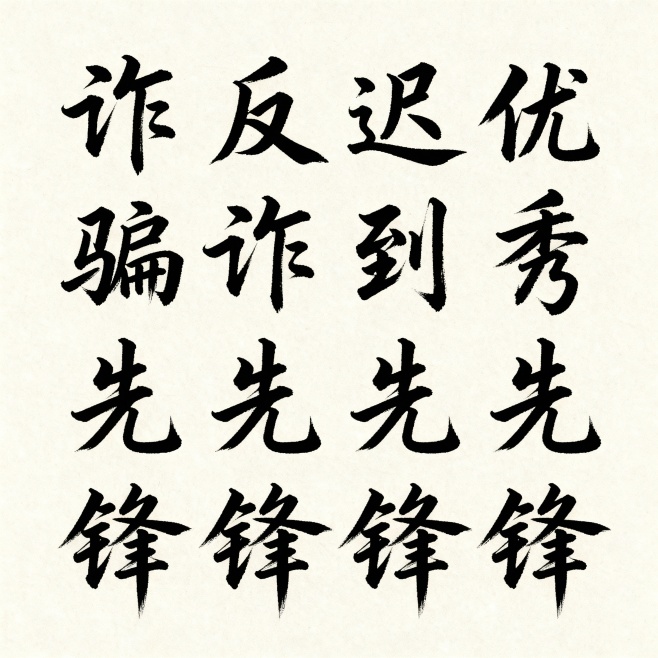 优秀先锋
迟到先锋
反诈先锋
诈骗先锋